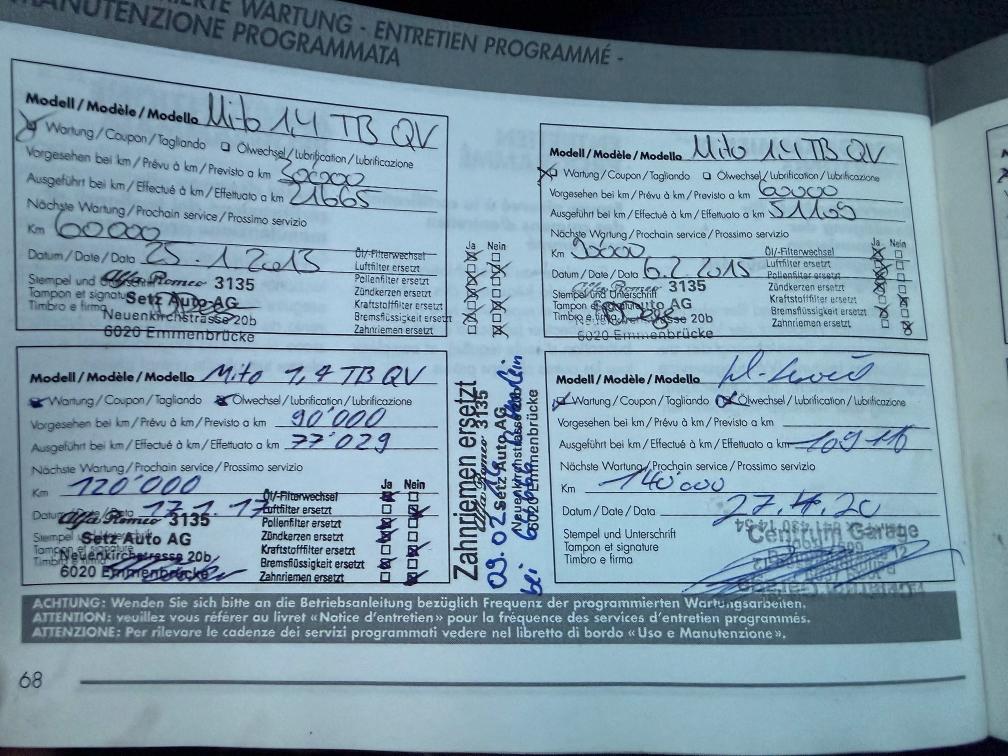 RTE WARTUNG - ENTRETIEN PROGRAMMÉ -
MANUTENZIONE PROGRAMMATA
Modell/Modèle/Modello Mito 1,4 TB QV
Wartung/Coupon/Tagliando Ölwechsel/Lubrification/Lubrificazione
Vorgesehen bei km/Prévu à km/Previsto a km
Ausgeführt bei km/Effectué à km/Effettuato a km 21665
Nächste Wartung/Prochain service/Prossimo servizio
Km 60000
Datum/Date/Data 25.1.2013
Stempel und
Tampon et signature
Timbro e firma
Alfa Romeo 3135
Setz Auto AG
Neuenkirchstrasse 20b
6020 Emmenbrücke
Ja Nein
Öl-/Filterwechsel
Luftfilter ersetzt
Pollenfilter ersetzt
Zündkerzen ersetzt
Kraftstofffilter ersetzt
Bremsflüssigkeit ersetzt
Zahnriemen ersetzt
Modell/Modèle/Modello Mito 1.4 TB QV
Wartung/Coupon/Tagliando Ölwechsel/Lubrification/Lubrificazione
Vorgesehen bei km/Prévu à km/Previsto a km 60000
Ausgeführt bei km/Effectué à km/Effettuato a km 51109
Nächste Wartung/Prochain service/Prossimo servizio
Km 90000
Datum/Date/Data 6.2.2015
Stempel und Unterschrift
Tampon
Timbro e
Alfa Romeo 3135
Auto AG
20b
6020 Emmenbrücke
Ja Nein
Öl-/Filterwechsel
Luftfilter ersetzt
Pollenfilter ersetzt
Zündkerzen ersetzt
Kraftstofffilter ersetzt
Bremsflüssigkeit ersetzt
Zahnriemen ersetzt
Modell/Modèle/Modello Mito 1,4 TB QV
Wartung/Coupon/Tagliando Ölwechsel/Lubrification/Lubrificazione
Vorgesehen bei km/Prévu à km/Previsto a km 90'000
Ausgeführt bei km/Effectué à km/Effettuato a km 77'029
Nächste Wartung/Prochain service/Prossimo servizio
Km 120'000
Datum/Date/Data 17.1.17
Alfa Romeo 3135
Setz Auto AG
Neuenkirchstrasse 20b
6020 Emmenbrücke
Ja Nein
Öl-/Filterwechsel
Luftfilter ersetzt
Pollenfilter ersetzt
Zündkerzen ersetzt
Kraftstofffilter ersetzt
Bremsflüssigkeit ersetzt
Zahnriemen ersetzt
Zahnriemen ersetzt
Alfa Romeo 3135
Setz Auto AG
Neuenkirchstrasse
6020 Emmenbrücke
bei
Modell/Modèle/Modello
Wartung/Coupon/Tagliando Ölwechsel/Lubrification/Lubrificazione
Vorgesehen bei km/Prévu à km/Previsto a km
Ausgeführt bei km/Effectué à km/Effettuato a km 109 116
Nächste Wartung/Prochain service/Prossimo servizio
Km 140'000
Datum/Date/Data
Stempel und Unterschrift
Tampon et signature
Timbro e firma
Centrum Garage
ACHTUNG: Wenden Sie sich bitte an die Betriebsanleitung bezüglich Frequenz der programmierten Wartungsarbeiten.
ATTENTION: veuillez vous référer au livret «Notice d'entretien» pour la fréquence des services d'entretien programmés.
ATTENZIONE: Per rilevare le cadenze dei servizi programmati vedere nel libretto di bordo «Uso e Manutenzione».
68